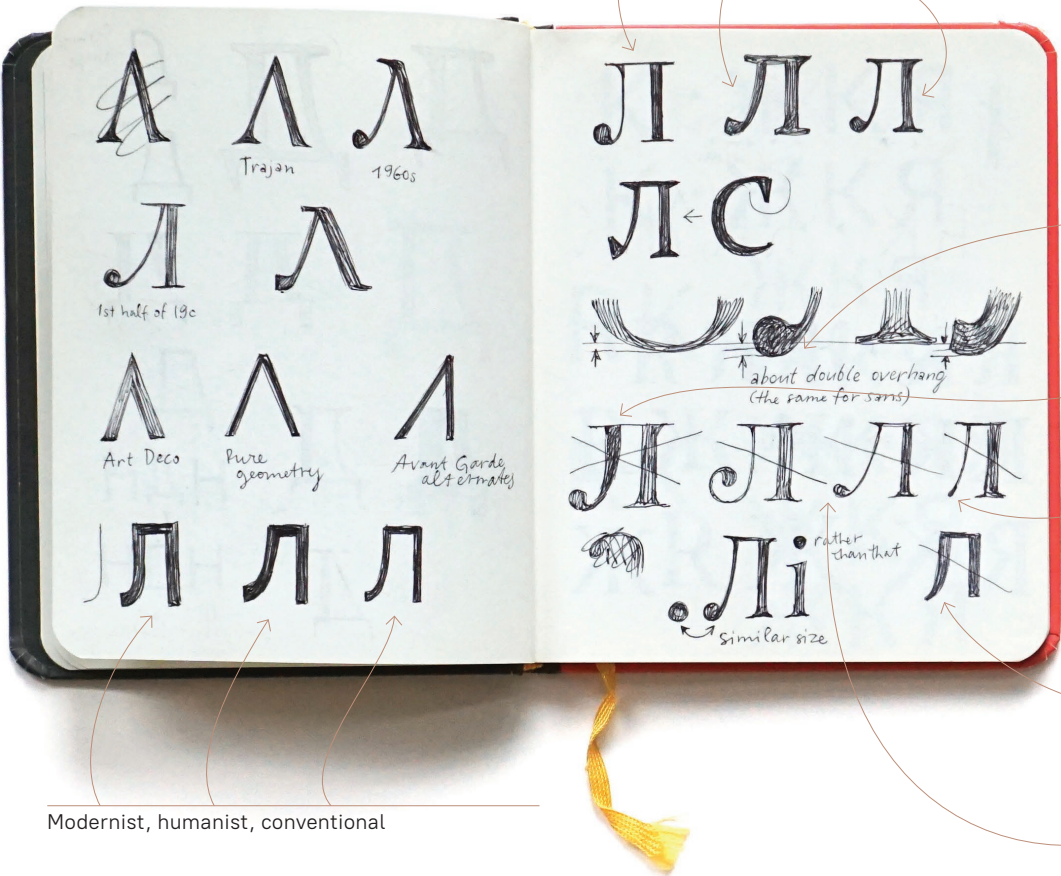 Л Л Л
Trajan
1960s
Л Л
1st half of 19c
Л Л Л
Art Deco
Pure
geometry
Avant Garde
alternates
Л Л Л
Л Л Л
Л ← С
about double overhang
(the same for sans)
Л Л Л Л
Лі
rather
than that
Л
similar size
Modernist, humanist, conventional